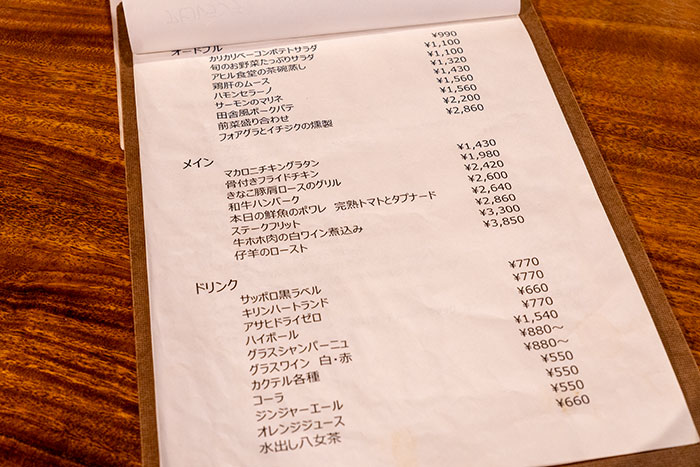 オードブル
カリカリベーコンポテトサラダ ¥990
旬のお野菜たっぷりサラダ ¥1,100
アヒル食堂の茶碗蒸し ¥1,100
鶏肝のムース ¥1,320
ハモンセラーノ ¥1,430
サーモンのマリネ ¥1,560
田舎風ポークパテ ¥1,560
前菜盛り合わせ ¥2,200
フォアグラとイチジクの燻製 ¥2,860
メイン
マカロニチキングラタン ¥1,430
骨付きフライドチキン ¥1,980
きなこ豚肩ロースのグリル ¥2,420
和牛ハンバーグ ¥2,600
本日の鮮魚のポワレ 完熟トマトとタプナード ¥2,640
ステークフリット ¥2,860
牛ホホ肉の白ワイン煮込み ¥3,300
仔羊のロースト ¥3,850
ドリンク
サッポロ黒ラベル ¥770
キリンハートランド ¥770
アサヒドライゼロ ¥660
ハイボール ¥770
グラスシャンパーニュ ¥1,540
グラスワイン 白・赤 ¥880～
カクテル各種 ¥880～
コーラ ¥550
ジンジャーエール ¥550
オレンジジュース ¥550
水出し八女茶 ¥660